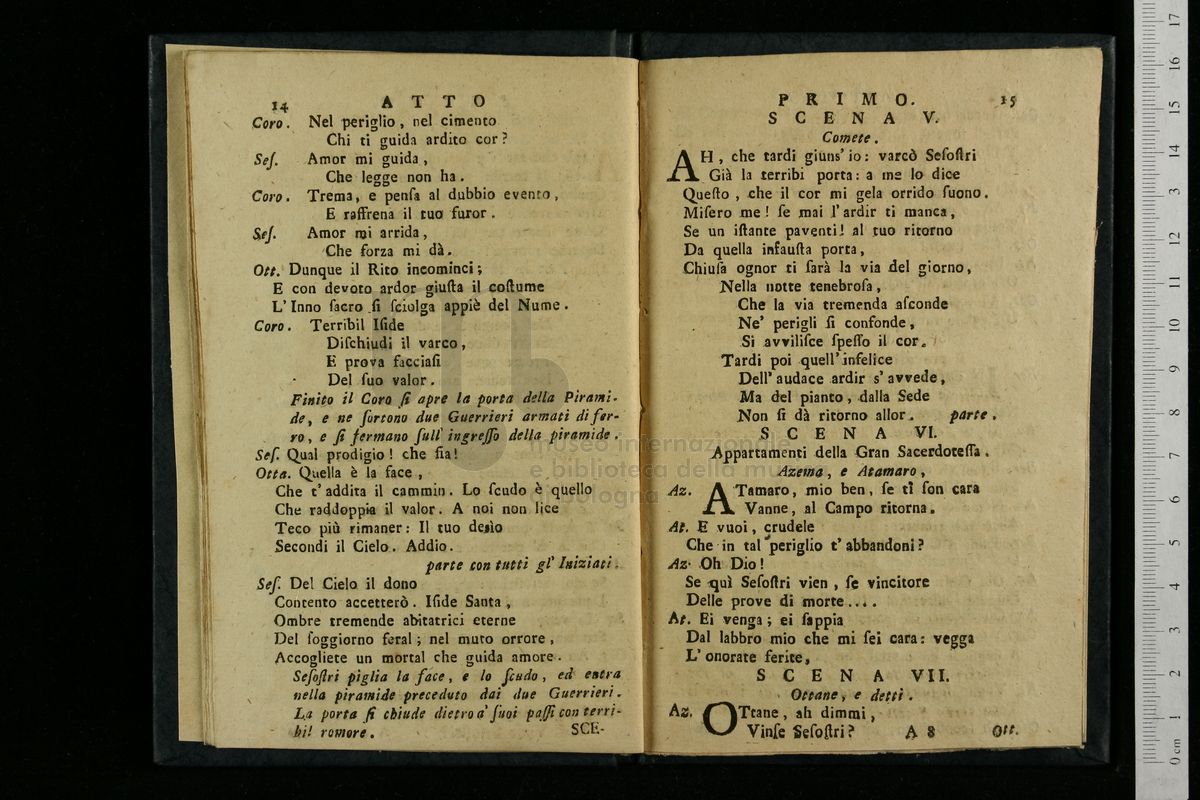 14 ATTO
Coro. Nel periglio, nel cimento
Chi ti guida ardito cor?
Seſ. Amor mi guida,
Che legge non ha.
Coro. Trema, e penſa al dubbio evento,
E raffrena il tuo furor.
Seſ. Amor mi arrida,
Che forza mi dà.
Ott. Dunque il Rito incominci;
E con devoto ardor giuſta il coſtume
L'Inno ſacro ſi ſciolga appiè del Nume.
Coro. Terribil Iſide
Diſchiudi il varco,
E prova facciaſi
Del ſuo valor.
Finito il Coro ſi apre la porta della Pirami-
de, e ne ſortono due Guerrieri armati di fer-
ro, e ſi fermano ſull' ingreſſo della piramide.
Seſ. Qual prodigio! che ſia!
Otta. Quella è la face,
Che t'addita il cammin. Lo ſcudo è quello
Che raddoppia il valor. A noi non lice
Teco più rimaner: Il tuo desìo
Secondi il Cielo. Addio.
parte con tutti gl' Iniziati.
Seſ. Del Cielo il dono
Contento accetterò. Iſide Santa,
Ombre tremende abitatrici eterne
Del ſoggiorno feral; nel muto orrore,
Accogliete un mortal che guida amore.
Seſoſtri piglia la face, e lo ſcudo, ed entra
nella piramide preceduto dai due Guerrieri.
La porta ſi chiude dietro a' ſuoi paſſi con terri-
bil romore.
SCE-
PRIMO. 15
SCENA V.
Comete.
AH, che tardi giuns' io: varcò Seſoſtri
Già la terribi porta: a me lo dice
Queſto, che il cor mi gela orrido ſuono.
Miſero me! ſe mai l'ardir ti manca,
Se un iſtante paventi! al tuo ritorno
Da quella infauſta porta,
Chiuſa ognor ti ſarà la via del giorno,
Nella notte tenebroſa,
Che la via tremenda aſconde
Ne' perigli ſi confonde,
Si avviliſce ſpeſſo il cor.
Tardi poi quell' infelice
Dell' audace ardir s'avvede,
Ma del pianto, dalla Sede
Non ſi dà ritorno allor. parte.
SCENA VI.
Appartamenti della Gran Sacerdoteſſa.
Azema, e Atamaro,
Az. ATamaro, mio ben, ſe ti ſon cara
Vanne, al Campo ritorna.
At. E vuoi, crudele
Che in tal periglio t'abbandoni?
Az. Oh Dio!
Se quì Seſoſtri vien, ſe vincitore
Delle prove di morte....
At. Ei venga; ei ſappia
Dal labbro mio che mi ſei cara: vegga
L'onorate ferite,
SCENA VII.
Ottane, e detti.
Az. OTtane, ah dimmi,
Vinſe Seſoſtri? A 8 Ott.
museo internazionale
e biblioteca della mu
di bologna
0 cm 1 2 3 4 5 6 7 8 9 10 11 12 13 14 15 16 17